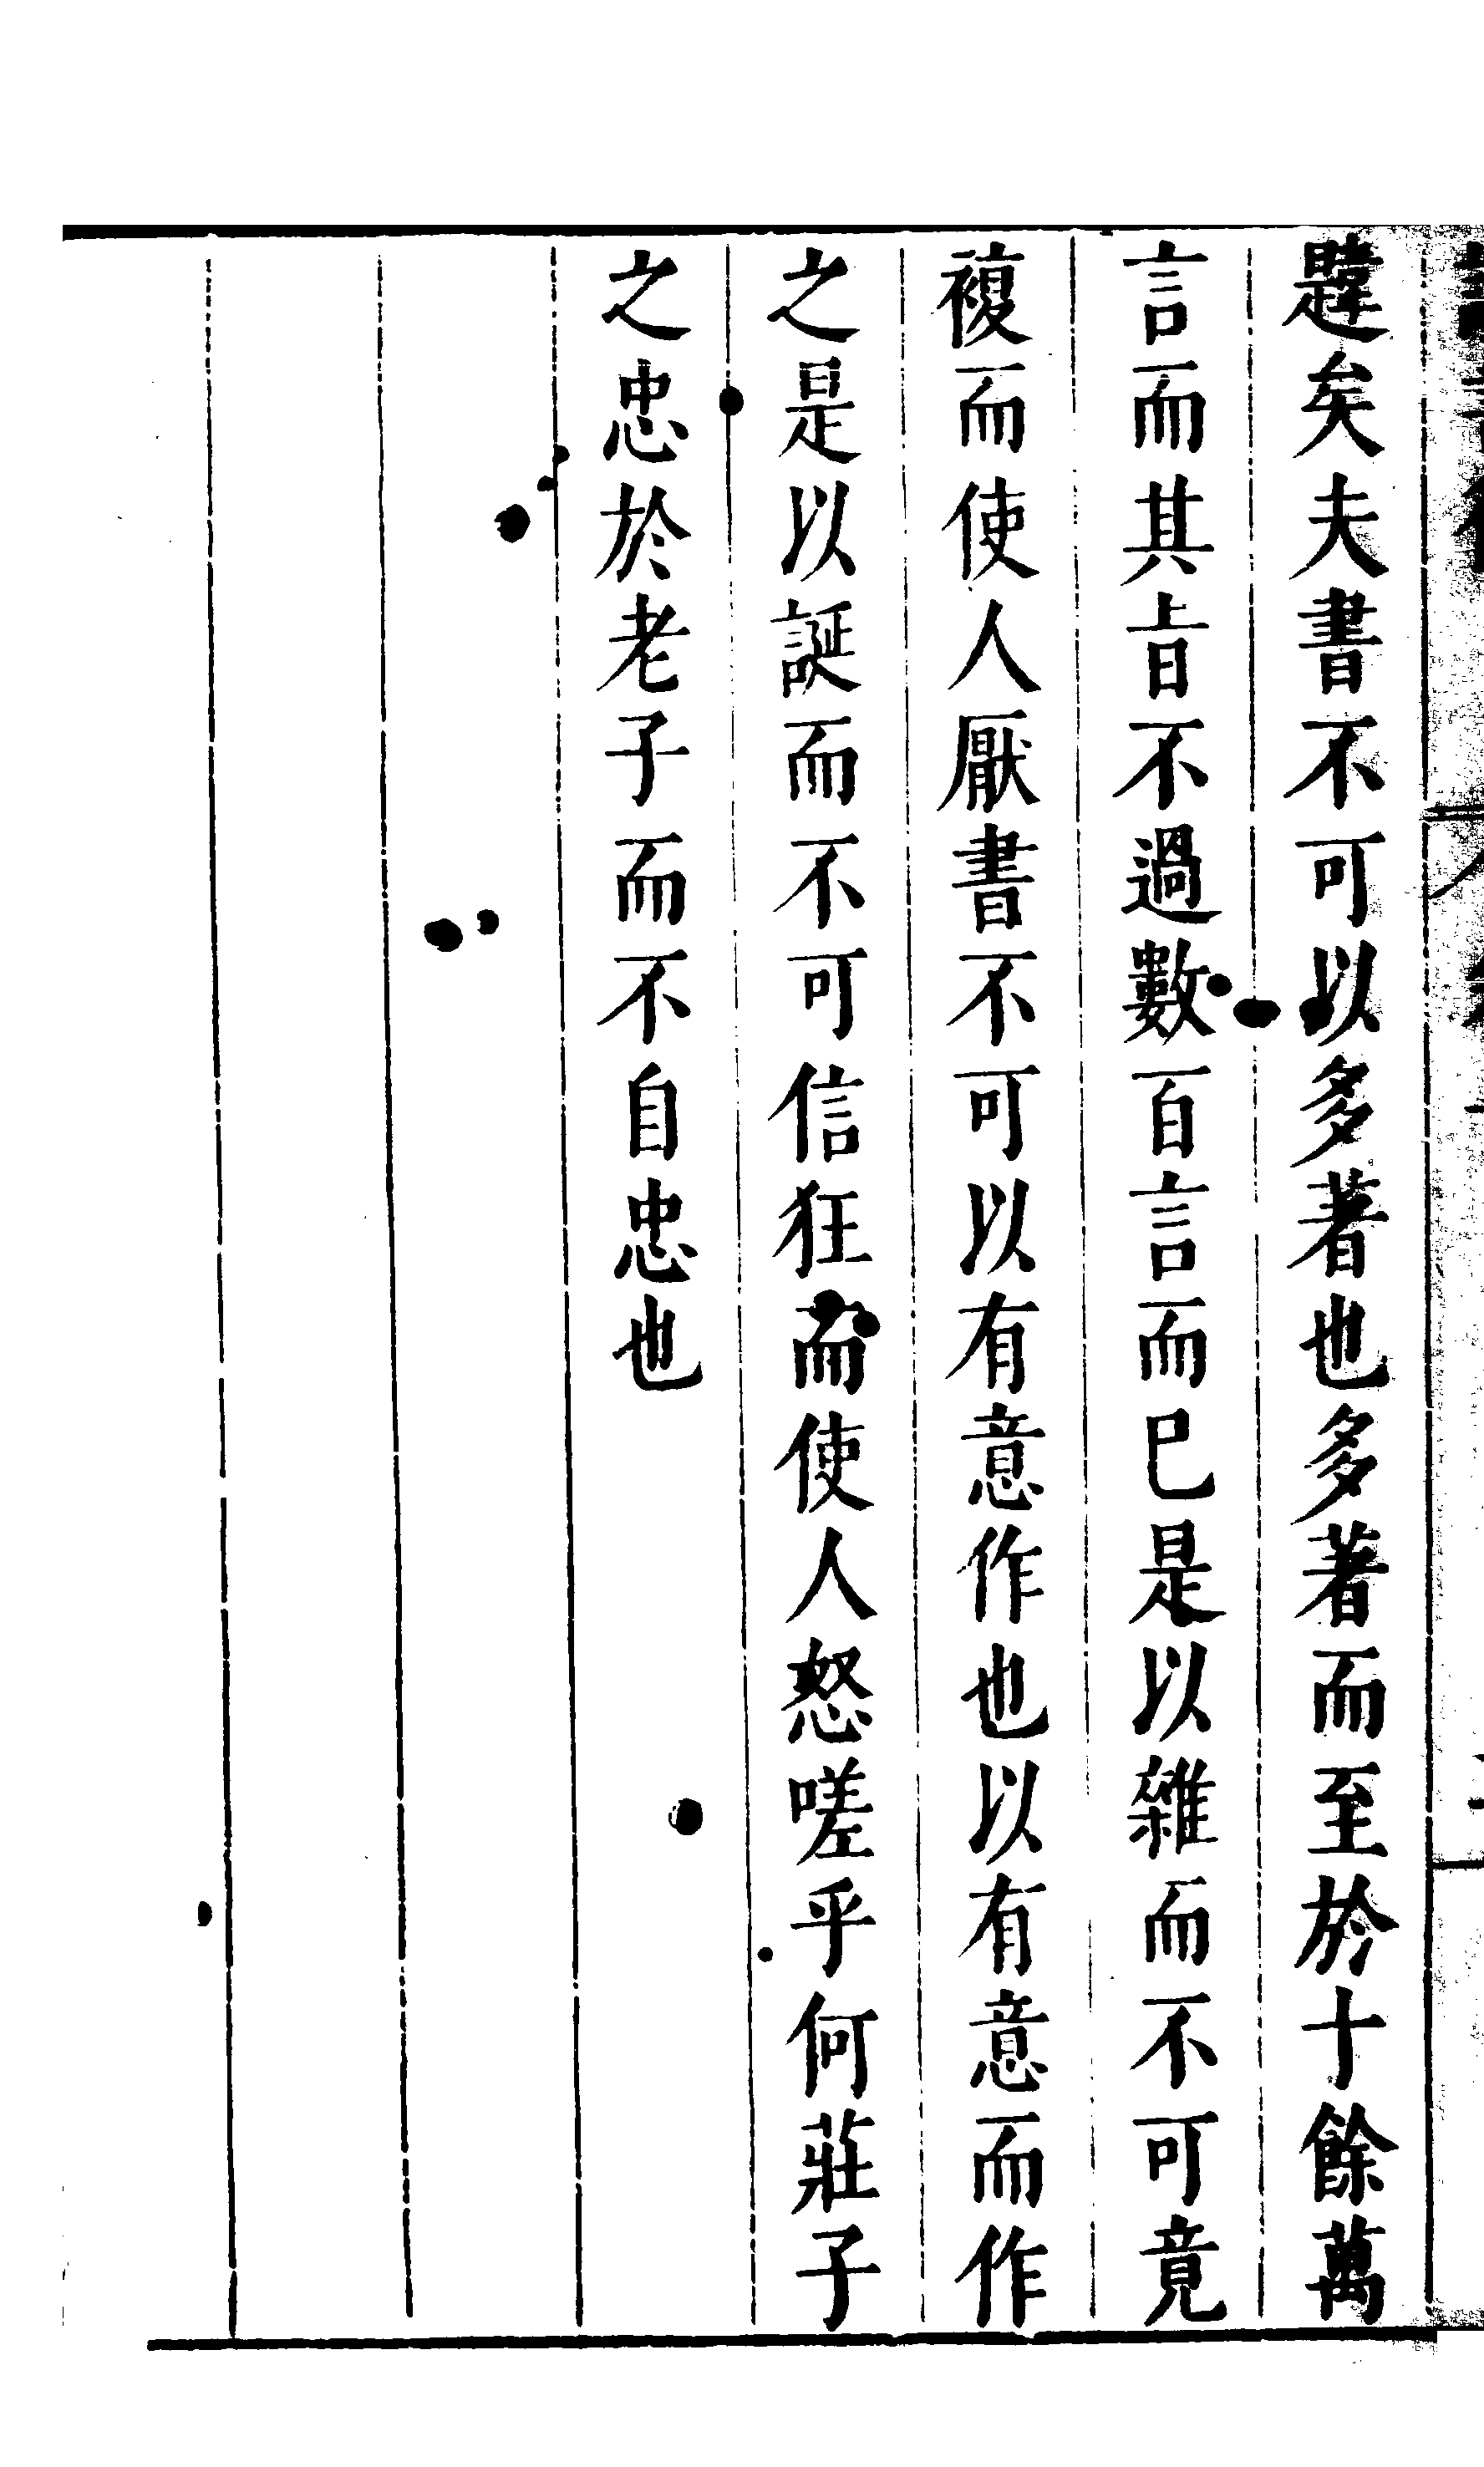 韙矣夫書不可以多著也多著而至於十餘萬
言而其旨不過數百言而已是以雜而不可竟
複而使人厭書不可以有意作也以有意而作
之是以誕而不可信狂而使人怒嗟乎何莊子
之忠於老子而不自忠也